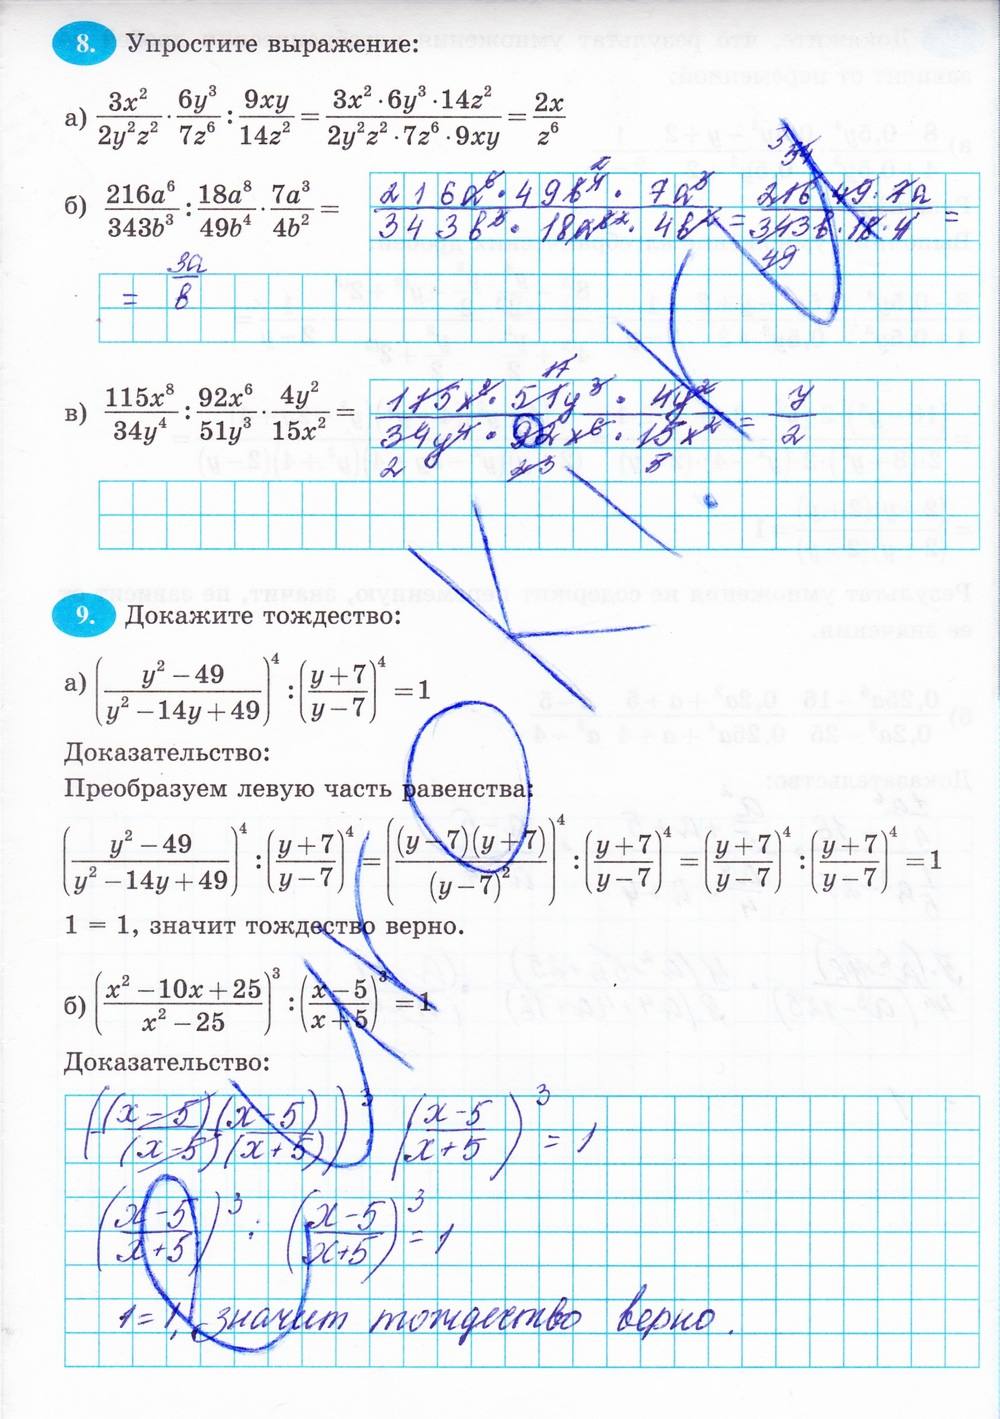 8. Упростите выражение:
а) 3x²/2y²z² · 6y³/7z⁶ : 9xy/14z² = 3x² · 6y³ · 14z²/2y²z² · 7z⁶ · 9xy = 2x/z⁶
б) 216a⁶/343b³ : 18a⁸/49b⁴ · 7a³/4b² = 216a⁶ · 49b⁴ · 7a³/343b³ · 18a⁸ · 4b² = 216 · 49 · 7a/343b · 18 · 4 =
= 3a/b
в) 115x⁸/34y⁴ : 92x⁶/51y³ · 4y²/15x² = 115x⁸ · 51y³ · 4y²/34y⁴ · 92x⁶ · 15x² = y/2
9. Докажите тождество:
а) (y² − 49/y² − 14y + 49)⁴ : (y + 7/y − 7)⁴ = 1
Доказательство:
Преобразуем левую часть равенства:
(y² − 49/y² − 14y + 49)⁴ : (y + 7/y − 7)⁴ = ((y − 7)(y + 7)/(y − 7)²)⁴ : (y + 7/y − 7)⁴ = (y + 7/y − 7)⁴ : (y + 7/y − 7)⁴ = 1
1 = 1, значит тождество верно.
б) (x² − 10x + 25/x² − 25)³ : (x − 5/x + 5)³ = 1
Доказательство:
((x − 5)(x − 5)/(x − 5)(x + 5))³ (x − 5/x + 5)³ = 1
(x − 5/x + 5)³ : (x − 5/x + 5)³ = 1
1 = 1, значит тождество верно.